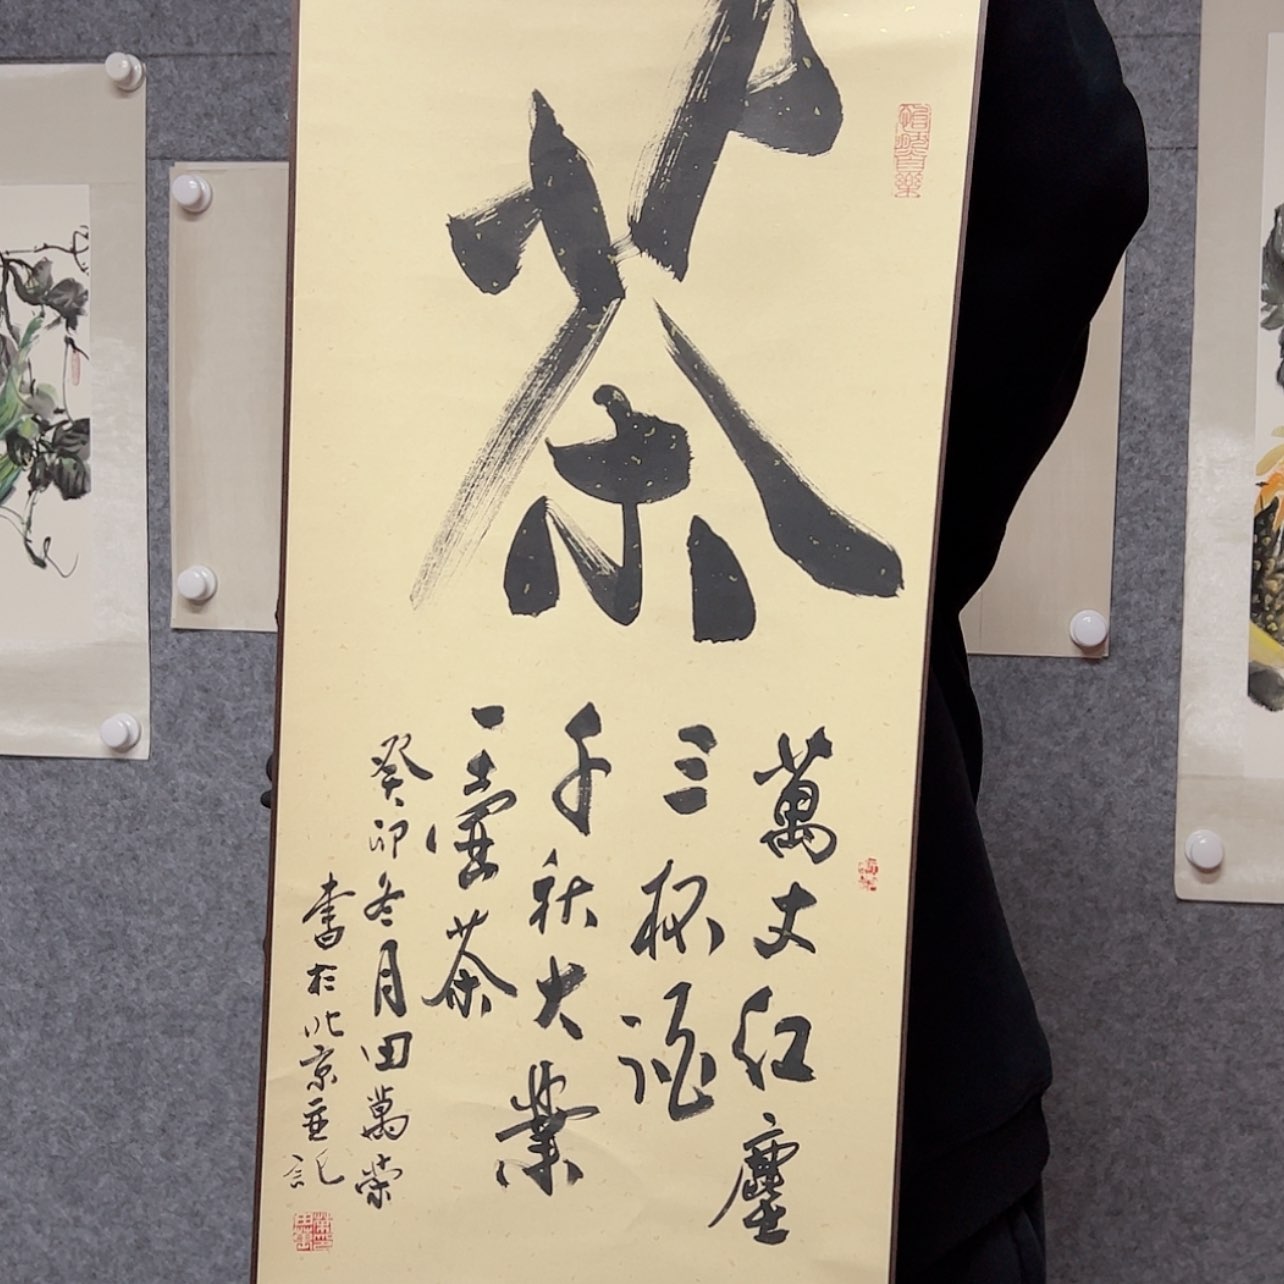 茶
萬丈紅塵
三杯酒
千秋大業
一壺茶
癸卯冬月田萬榮
書於北京並記